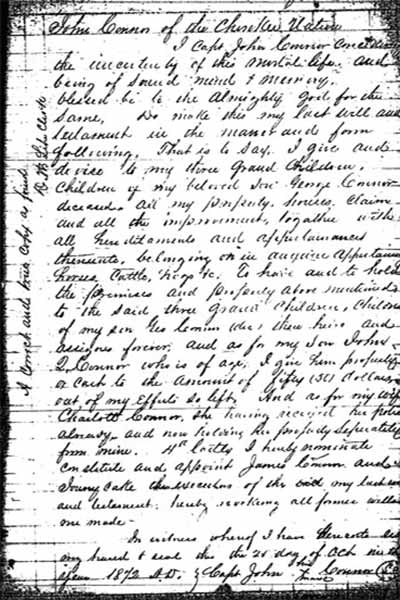 John Connor of the Cherokee Nation
I Capt John Connor Considering
the uncertenty of this mortal life and
being of sound mind & memory,
blessed be to the Almighty God for the
same, Do make this my last will and
testament in the maner and form
following. That is to say, I give and
device to my three Grand Children,
Children of my beloved son George Connor
deceased. all my property, houses claim
and all the improvement, togather with
all heriditaments and appertainances
thereunto, belonging or in
horses Cattle, hogs &c. To have and to hold
the premises and property above mentioned
to the said three Grand Children, Children
of my son Geo Connor dec, there heirs and
assignes forever, and as for my son John
Q. Connor who is of age, I give him property
or cash to the amount of fifty (50) dollars,
out of my effects so left, And as for my wife
Charlott Connor, She having received her
already, and now holding her property seperately
from mine. 4th lastly I hereby nominate
constitute and appoint James Connor and
the executors of this my last will
and testament, hereby revoking all former wills
me made.
In witness whereof I have Hereunto set
my hand & seal this the 28 day of Oct in the
year 1872 A.D. Capt John his Connor
mark
A Correct and true Copy as found.
Clerk